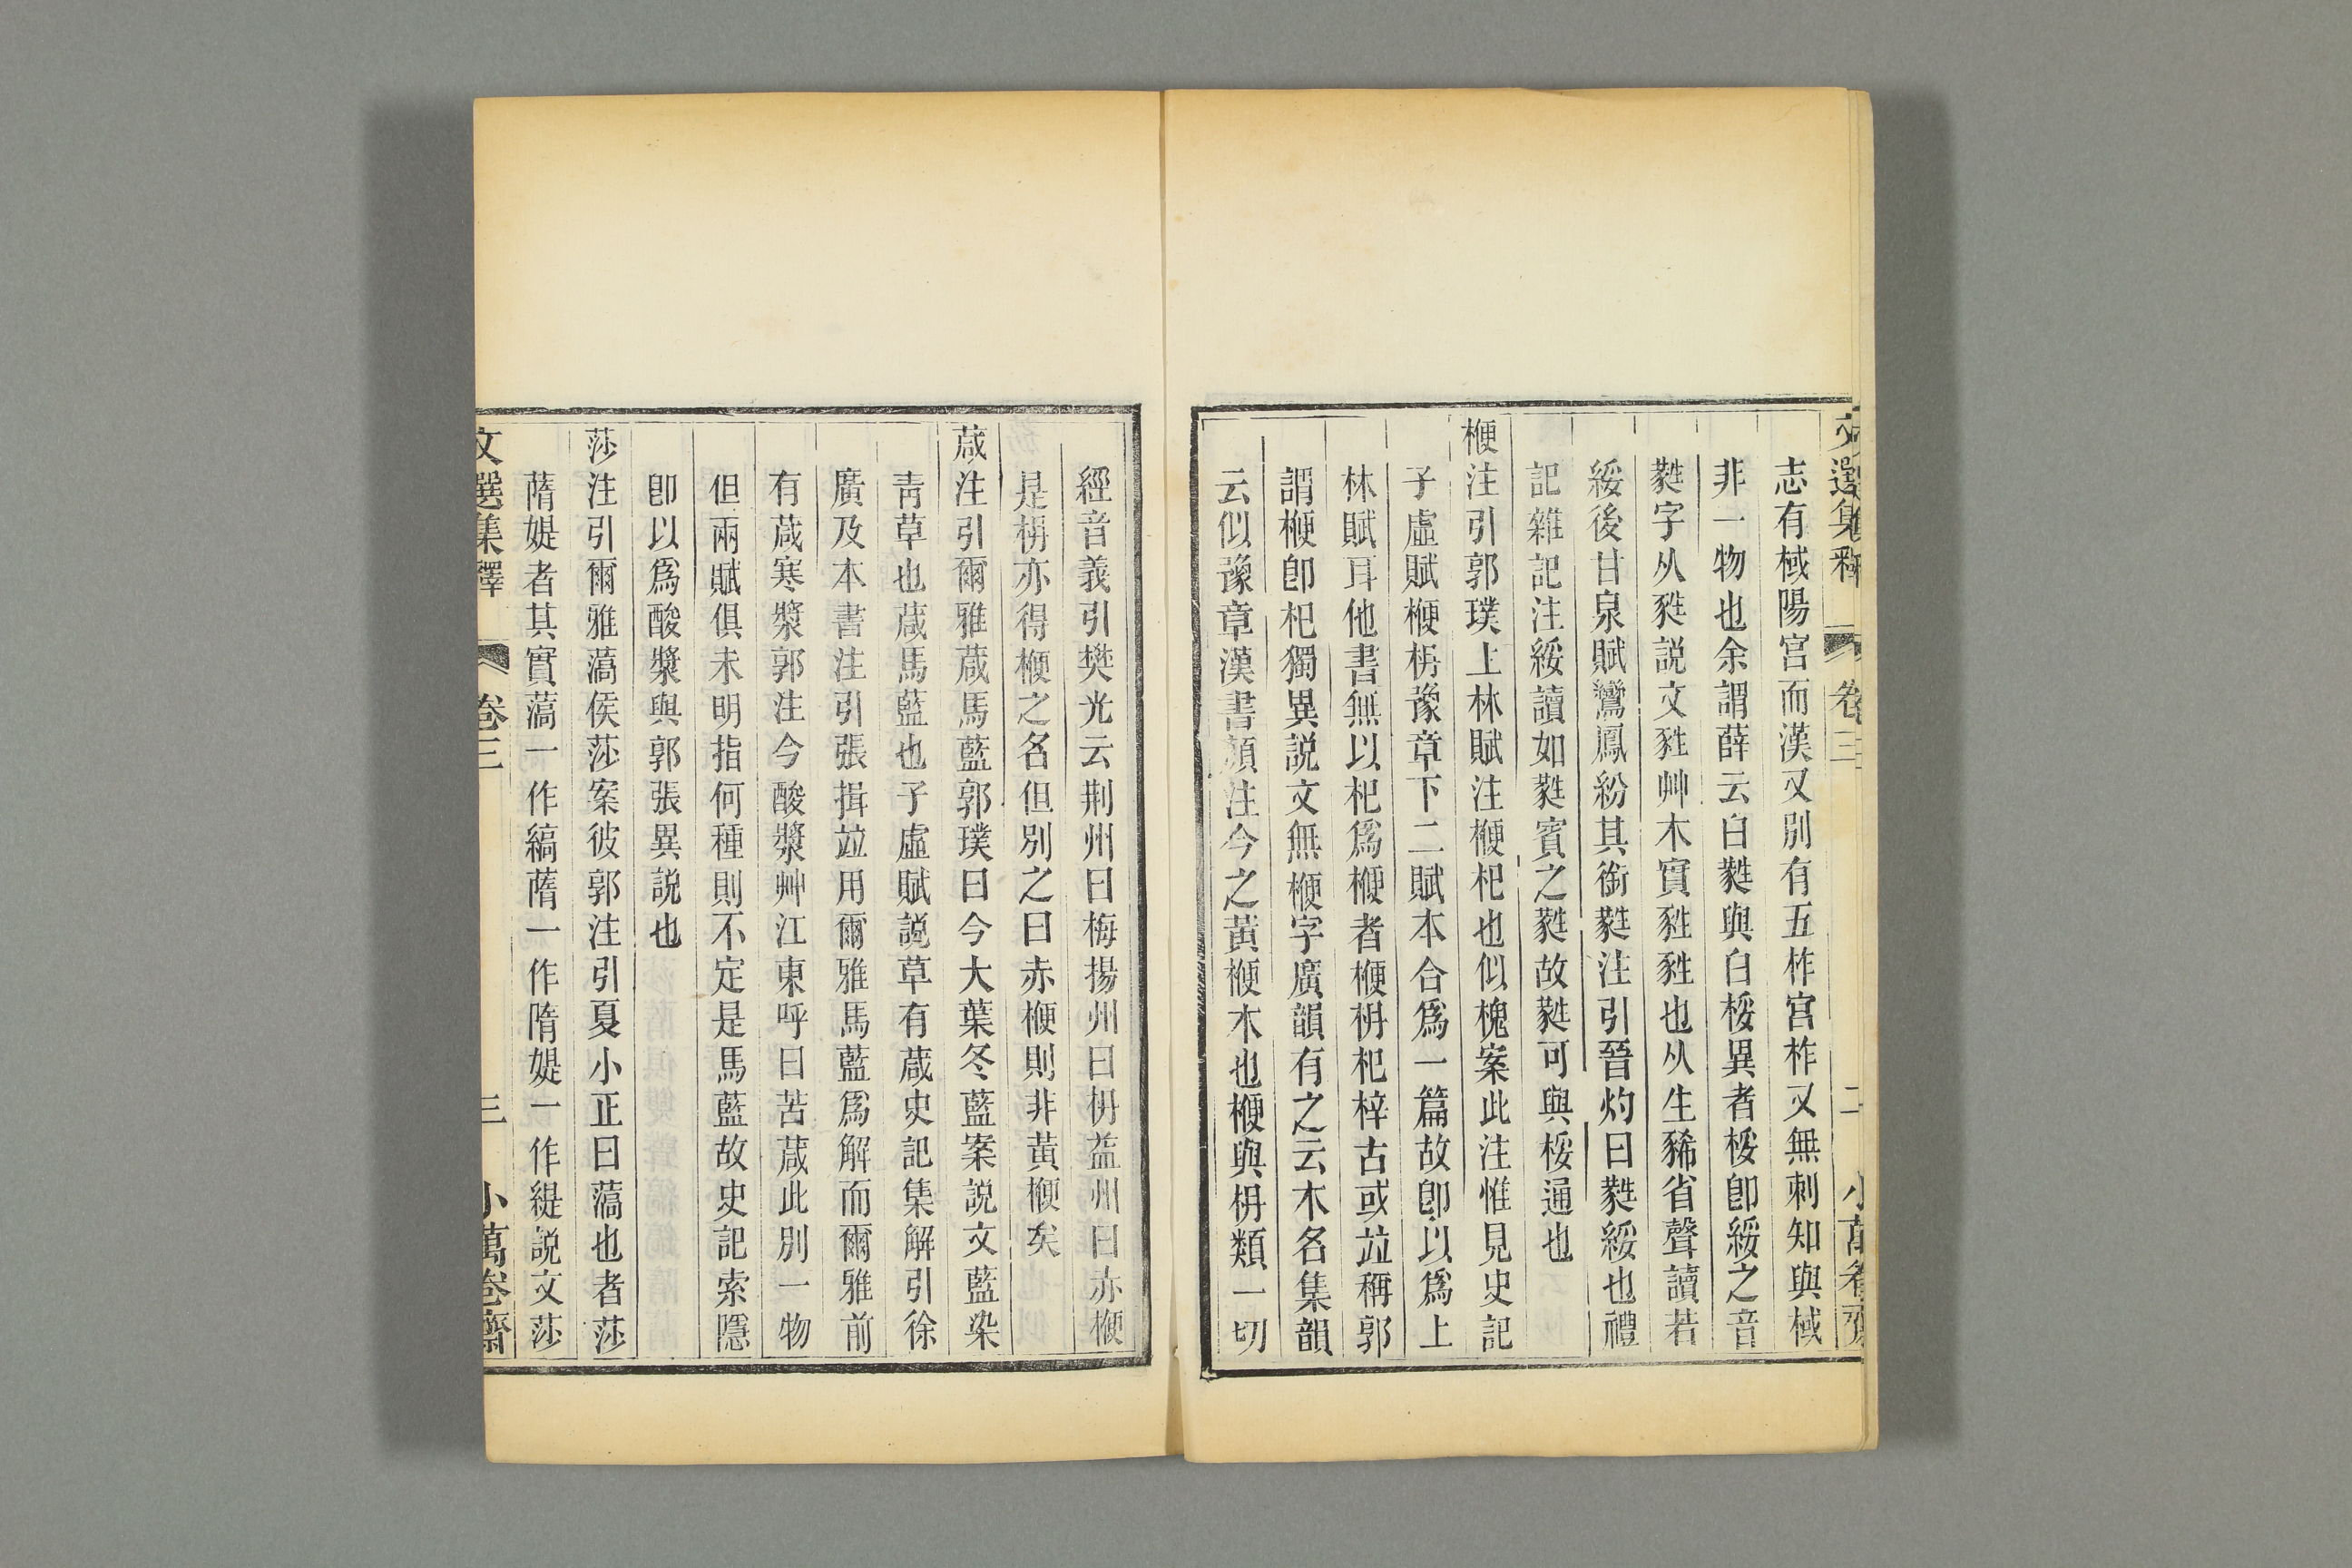 文選集釋 卷三 二 小萬卷齋
志有棫陽宮而漢又別有五柞宮柞又無刺知與棫
非一物也余謂薛云白蕤與白桵異者桵卽綏之音
蕤字从甤說文甤艸木實甤甤也从生豨省聲讀若
綏後甘泉賦鸞鳳紛其銜蕤注引晉灼曰蕤綏也禮
記雜記注綏讀如蕤賓之蕤故蕤可與桵通也
楩注引郭璞上林賦注楩杞也似槐案此注惟見史記
子虛賦楩枬豫章下二賦本合爲一篇故卽以爲上
林賦耳他書無以杞爲楩者楩枬杞梓古或竝稱郭
謂楩卽杞獨異說文無楩字廣韻有之云木名集韻
云似豫章漢書顏注今之黃楩木也楩與枬類一切
經音義引樊光云荆州曰梅揚州曰枬益州曰赤楩
是枬亦得楩之名但別之曰赤楩則非黃楩矣
葴注引爾雅葴馬藍郭璞曰今大葉冬藍案說文藍染
靑草也葴馬藍也子虛賦說草有葴史記集解引徐
廣及本書注引張揖竝用爾雅馬藍爲解而爾雅前
有葴寒漿郭注今酸漿艸江東呼曰苦葴此別一物
但兩賦俱未明指何種則不定是馬藍故史記索隱
卽以爲酸漿與郭張異說也
莎注引爾雅薃侯莎案彼郭注引夏小正曰薃也者莎
蓆媞者其實薃一作縞蓆一作隋媞一作緹說文莎
文選集釋 卷三 三 小萬卷齋